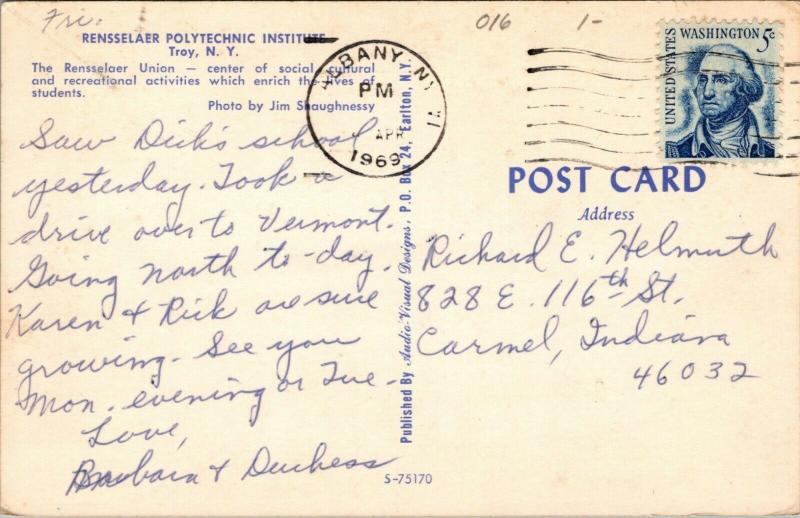 Fri.
016
1-
RENSSELAER POLYTECHNIC INSTITUTE
Troy, N. Y.
The Rensselaer Union — center of social, cultural
and recreational activities which enrich the lives of
students.
Photo by Jim Shaughnessy
ALBANY, NY
PM
APR
1969
UNITED STATES
WASHINGTON 5c
Saw Dick's school
yesterday. Took a
drive over to Vermont.
Going north to-day.
Karen & Rick are sure
growing. See you
Mon. evening or Tue-
Love,
Barbara & Duchess
Published By Audio-Visual Designs, P.O. Box 24, Earlton, N.Y.
POST CARD
Address
Richard E. Helmuth
828 E. 116th St.
Carmel, Indiana
46032
S-75170